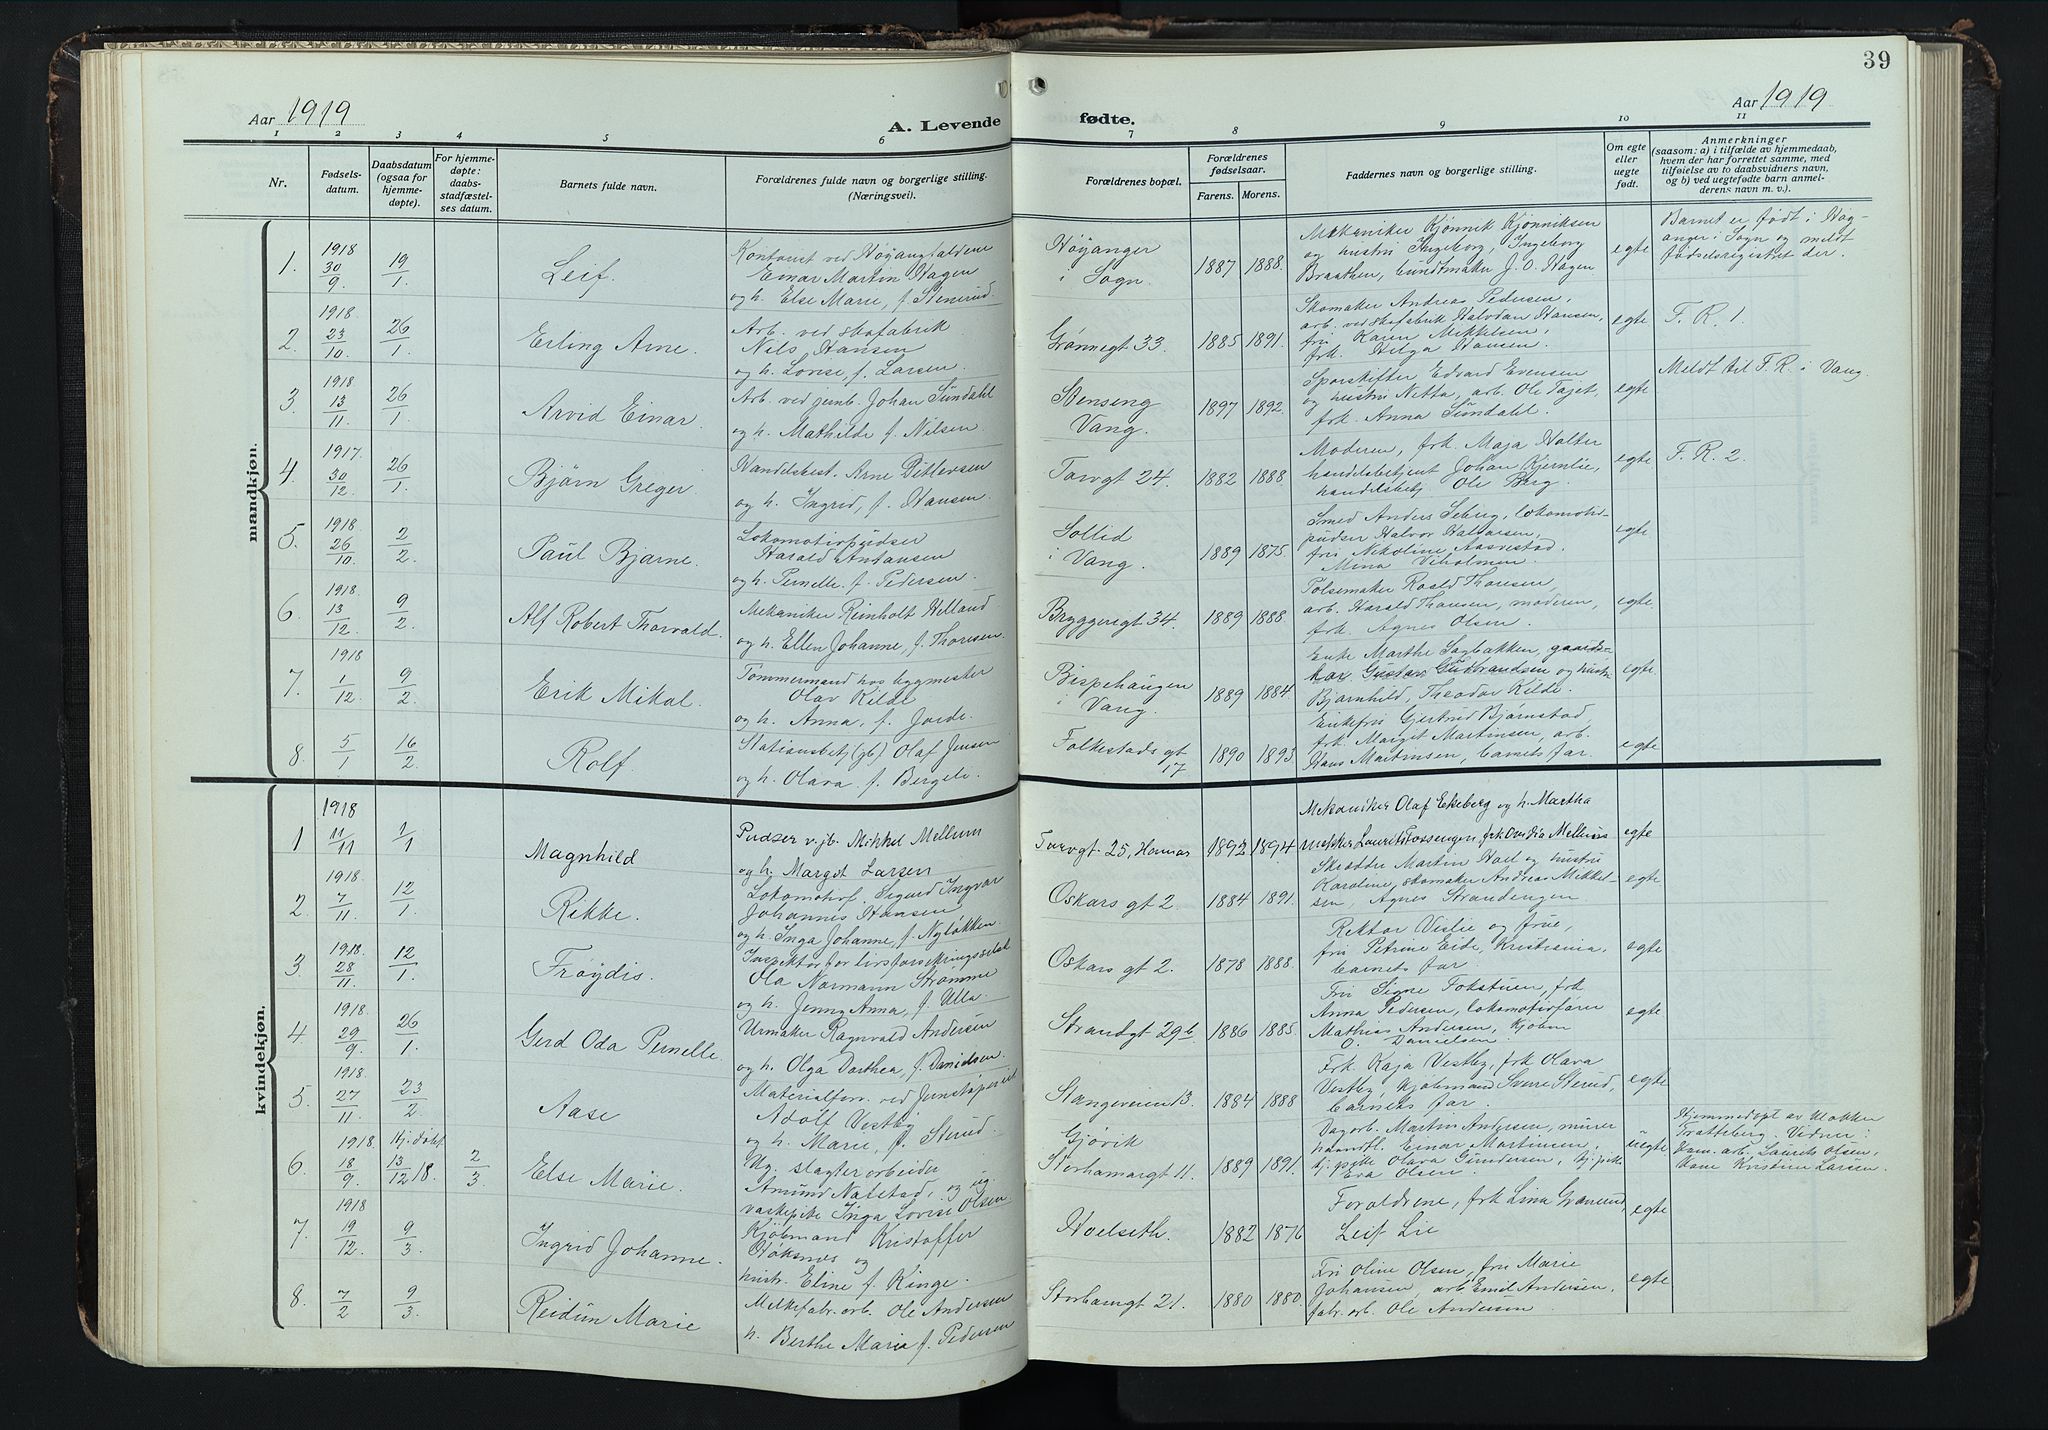 39
Aar 1919
Aar 1919
A. Levende fødte.
1 2 3 4 5 6 7 8 9 10 11
Nr.
Fødsels-
datum.
Daabsdatum
(ogsaa for
hjemme-
døpte).
For hjemme-
døpte:
daabs-
stadfæstel-
ses datum.
Barnets fulde navn.
Forældrenes fulde navn og borgerlige stilling.
(Næringsvei).
Forældrenes bopæl.
Forældrenes
fødselsaar.
Farens. Morens.
Faddernes navn og borgerlige stilling.
Om egte
eller
uegte
født.
Anmerkninger
(saasom: a) i tilfælde av hjemmedaab,
hvem der har forrettet samme, med
tilføielse av to daabsvidners navn,
og b) ved uegtefødte barn anmel-
derens navn m. v.).
mandkjøn.
1. 1918 30/9 19/1 Leif.
Kontorist ved Høyangfaldene
Einar Martin Hagen
og h. Else Marie, f. Stenerud.
Høyanger
i Sogn.
1887 1888.
Mekaniker Kjønnik Kjønniksen
og hustru Ingeborg, Ingeborg
Braathen, bundtmaker J. O. Hagen
egte
Barnet er født i Høy-
anger i Sogn og meldt
fødselsregistret der.
2. 1918. 23/10. 26/1 Erling Arne.
Arb. ved skofabrik
Nils Hansen
og h. Lovise, f. Larsen.
Grønnegt 33.
1885 1891.
Skomaker Andreas Pedersen,
arb. ved skofabrik Halvdan Hansen,
fru Karen Mikkelsen,
frk. Helga Hansen.
egte
F. R. 1.
3. 1918 13/11. 26/1 Arvid Einar.
Arb. ved jernb. Johan Sundahl
og h. Mathilde f. Nilsen.
Stenseng
Vang.
1897 1892.
Sporskifter Edvard Evensen
og hustru Netta, arb. Ole Tajet,
frk. Anna Sundahl.
egte
Meldt til F. R. i Vang.
4. 1917. 30/12. 26/1 Bjørn Greger
Handelsbest. Arne Ditlevsen
og h. Ingrid, f. Hansen.
Torvgt 24.
1882 1888
Moderen, frk. Maja Holter
handelsbetjent Johan Kjernlie,
handelsbetj. Ole Berg.
egte
F. R. 2.
5. 1918. 26/10. 2/2 Paul Bjarne.
Lokomotivpudser
Harald Antonsen
og h. Pernelle. f. Pedersen.
Sollid
i Vang.
1889 1875.
Smed Anders Seberg, lokomotiv-
pudser Halvor Halvorsen,
fru Nikoline Aasvestad.
Mina Viholmen.
egte
6. 1918 13/12. 9/2 Alf Robert Thorvald.
Mekaniker Reinholt Helland
og h. Ellen Johanne, f. Thoresen.
Bryggerigt 34.
1889 1888.
Pølsemaker Roald Thoresen,
arb. Harald Thoresen, moderen,
frk. Agnes Olsen.
egte.
7. 1918 1/12. 9/2 Erik Mikal.
Tømmermand hos bygmester
Olav Kilde
og h. Anna, f. Jorde.
Bispehaugen
i Vang.
1889 1884.
Enke Marthe Sagbakken, gaards-
kar Gustav Gudbrandsen og hustru
Bjarnhild, Theodor Kilde.
egte
8. 5/1 16/2 Rolf.
Stationsbetj (gb) Olaf Jensen
og h. Olava f. Bergeli.
Folkestads gt
17
1890 1893.
Enkefru Gjertrud Bjørnstad,
frk. Marget Martinsen, arb.
Hans Martinsen, barnets far.
egte
kvindekjøn.
1 1918 11/11 1/1 Magnhild
Pudser v. jb. Mikkel Mellum
og h. Margot Larsen
Torvgt. 25, Hamar
1892 1894
Mekaniker Olaf Ekeberg og h. Martha
egte
2. 1918. 7/11. 12/1 Rikke.
Lokomotivf. Sigurd Ingvar
Johannes Hansen
og h. Inga Johanne, f. Nyløkken.
Oskars gt 2.
1884 1891.
Skrædder Martin Hoel og hustru
Karoline, skomaker Andreas Mikkel-
sen, Agnes Strandengen.
egte
3 1918. 28/11. 12/1 Frøydis.
Inspektør for livsforsikringsselsk
Ola Normann Strømme
og h. Jenny Anna, f. Ulla.
Oskars gt 2.
1878 1888.
Rektor Veslie og frue,
fru Petrine Eide, Kristiania,
barnets far.
egte
4. 1918. 29/9. 26/1. Gerd Oda Pernelle.
Urmaker Ragnvald Andersen
og h. Olga Dorthea, f. Danielsen.
Strandgt 29b
1886 1885
Fru Signe Fokstuen, frk
Anna Pedersen, lokomotivfører
Mathias Andersen, kjøbm
O. Danielsen.
egte
5. 1918. 27/11. 23/2. Aase
Materialforv. ved Jernstøperiet
Adolf Vestby
og h. Marie, f. Sterud.
Stangeveien 13.
1884 1888
Frk. Kaja Vestby, frk Olava
Vestby, kjøbmand Sverre Sterud,
barnets far.
egte
6. 1918. 18/9. Hj. døbt 13/12 18. 2/3 Else Marie.
Ug. slagterarbeider
Amund Nalstad, og ug.
Inga Lovise Olsen.
Gjøvik
Storhamargt 11.
1889 1891.
Vogarb. Martin Andersen, murer
Einar Martinsen,
Olava Gundersen,
Eva Olsen.
uegte
Hjemmedøpt av
Trætteberg. Vidner:
Laurits Olsen,
Kristine Larsen.
7. 1918 19/12. 9/3. Ingrid Johanne.
Kjøbmand Kristoffer
Høksnes og
hustr. Eline f. Kinge.
Hoelseth.
1882 1876
Forældrene, frk Lina Granerud,
Leif Lie
egte
8. 7/2 9/3. Reidun Marie
Melkefabr. arb. Ole Andersen
h. Berthe Marie f. Pedersen
Storhamgt 21.
1880 1880.
Fru Oline Olsen, fru Marie
Johansen, arb. Emil Andersen,
fabr. arb. Ole Andersen.
egte